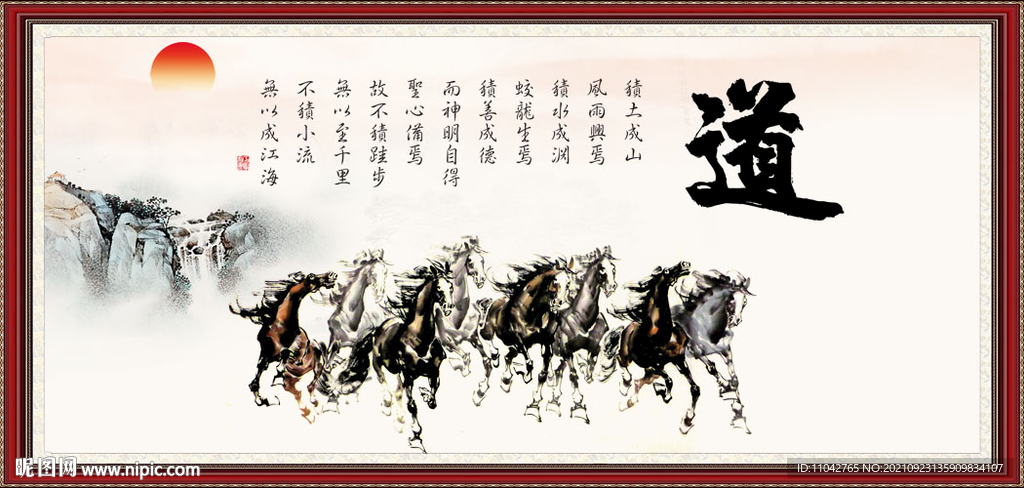 道
積土成山
風雨興焉
積水成淵
蛟龍生焉
積善成德
而神明自得
聖心備焉
故不積跬步
無以至千里
不積小流
無以成江海
昵图网 www.nipic.com
ID:11042765 NO:20210923135909834107